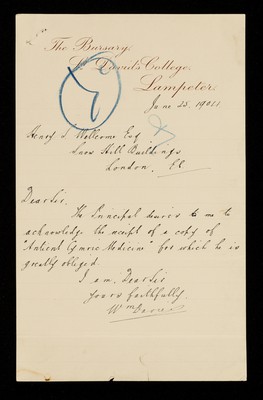 The Bursary,
St. David's College,
Lampeter.
June 23. 1904
Henry S Wellcome Esq
Snow Hill Buildings
London. EC
Dear Sir,
The Principal desires to me to
acknowledge the receipt of a copy of
"Antient Cymric Medicine" for which he is
greatly obliged.
I am, Dear Sir
Yours faithfully.
Wm Davies